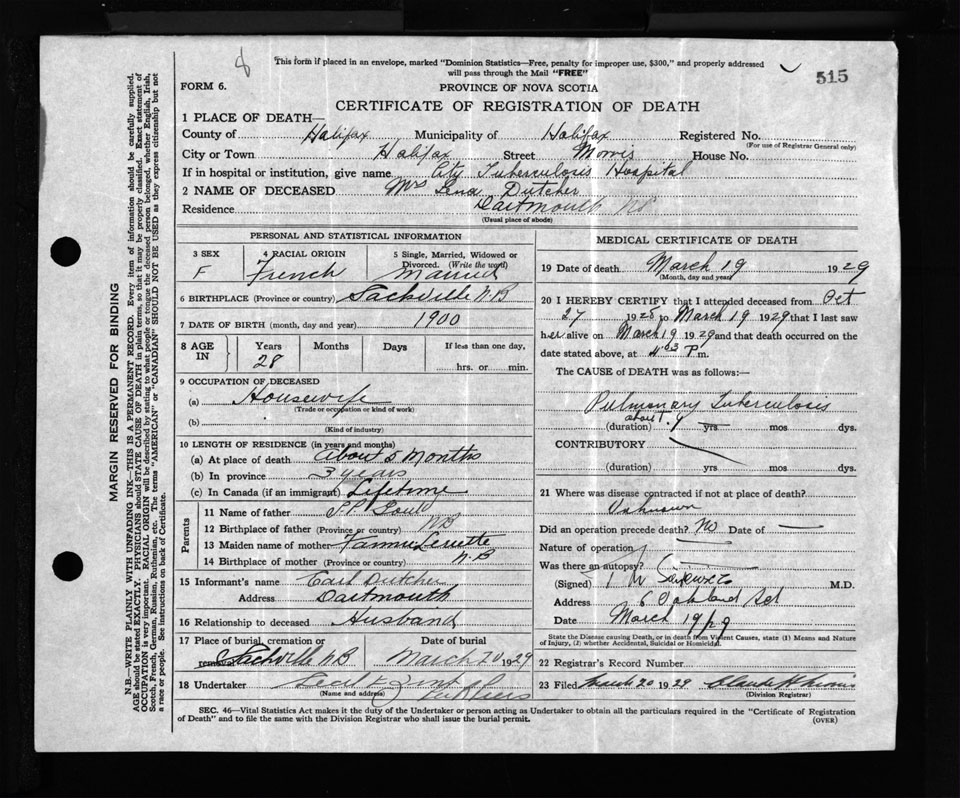 8
This form if placed in an envelope, marked "Dominion Statistics—Free, penalty for improper use, $300," and properly addressed
will pass through the Mail "FREE"
515
FORM 6.
PROVINCE OF NOVA SCOTIA
CERTIFICATE OF REGISTRATION OF DEATH
1 PLACE OF DEATH—
County of Halifax Municipality of Halifax Registered No.
(For use of Registrar General only)
City or Town Halifax Street Morris House No.
If in hospital or institution, give name City Tuberculosis Hospital
2 NAME OF DECEASED Mrs Lena Dutcher
Residence Dartmouth NS
(Usual place of abode)
PERSONAL AND STATISTICAL INFORMATION
3 SEX F
4 RACIAL ORIGIN French
5 Single, Married, Widowed or Divorced. (Write the word) Married
6 BIRTHPLACE (Province or country) Sackville N.B
7 DATE OF BIRTH (month, day and year) 1900
8 AGE IN Years 28 Months Days If less than one day, hrs. or min.
9 OCCUPATION OF DECEASED
(a) Housewife
(Trade or occupation or kind of work)
(b)
(Kind of industry)
10 LENGTH OF RESIDENCE (in years and months)
(a) At place of death About 5 Months
(b) In province 3 years
(c) In Canada (if an immigrant) Lifetime
Parents
11 Name of father
12 Birthplace of father (Province or country) NB
13 Maiden name of mother
14 Birthplace of mother (Province or country) N.B
15 Informant's name Carl Dutcher
Address Dartmouth
16 Relationship to deceased Husband
17 Place of burial, cremation or Sackville NB
Date of burial March 20 1929
18 Undertaker
(Name and address)
MEDICAL CERTIFICATE OF DEATH
19 Date of death March 19 1929
(Month, day and year)
20 I HEREBY CERTIFY that I attended deceased from Oct
27 1928 to March 19 1929 that I last saw
her alive on March 19 1929 and that death occurred on the
date stated above, at P m.
The CAUSE of DEATH was as follows:—
Pulmonary Tuberculosis
(duration) about yrs mos dys.
CONTRIBUTORY
(duration) yrs mos dys.
21 Where was disease contracted if not at place of death?
Unknown
Did an operation precede death? No Date of
Nature of operation
Was there an autopsy?
(Signed) M.D.
Address 6 Oakland Rd
Date March 19/29
State the Disease causing Death, or in death from Violent Causes, state (1) Means and Nature
of Injury, (2) whether Accidental, Suicidal or Homicidal.
22 Registrar's Record Number
23 Filed March 20 1929
(Division Registrar)
SEC. 46—Vital Statistics Act makes it the duty of the Undertaker or person acting as Undertaker to obtain all the particulars required in the "Certificate of Registration
of Death" and to file the same with the Division Registrar who shall issue the burial permit.
(OVER)
MARGIN RESERVED FOR BINDING
N.B.—WRITE PLAINLY WITH UNFADING INK—THIS IS A PERMANENT RECORD. Every item of information should be carefully supplied.
AGE should be stated EXACTLY. PHYSICIANS should STATE CAUSE OF DEATH in plain terms, so that it may be properly classified. Exact statement of
OCCUPATION is very important. RACIAL ORIGIN will be described by stating to what people or tongue the deceased person belonged, whether English, Irish,
Scotch, French, German, Russian, Ruthenian, etc. The terms "AMERICAN" or "CANADIAN" SHOULD NOT BE USED as they express citizenship but not
a race or people. See instructions on back of Certificate.